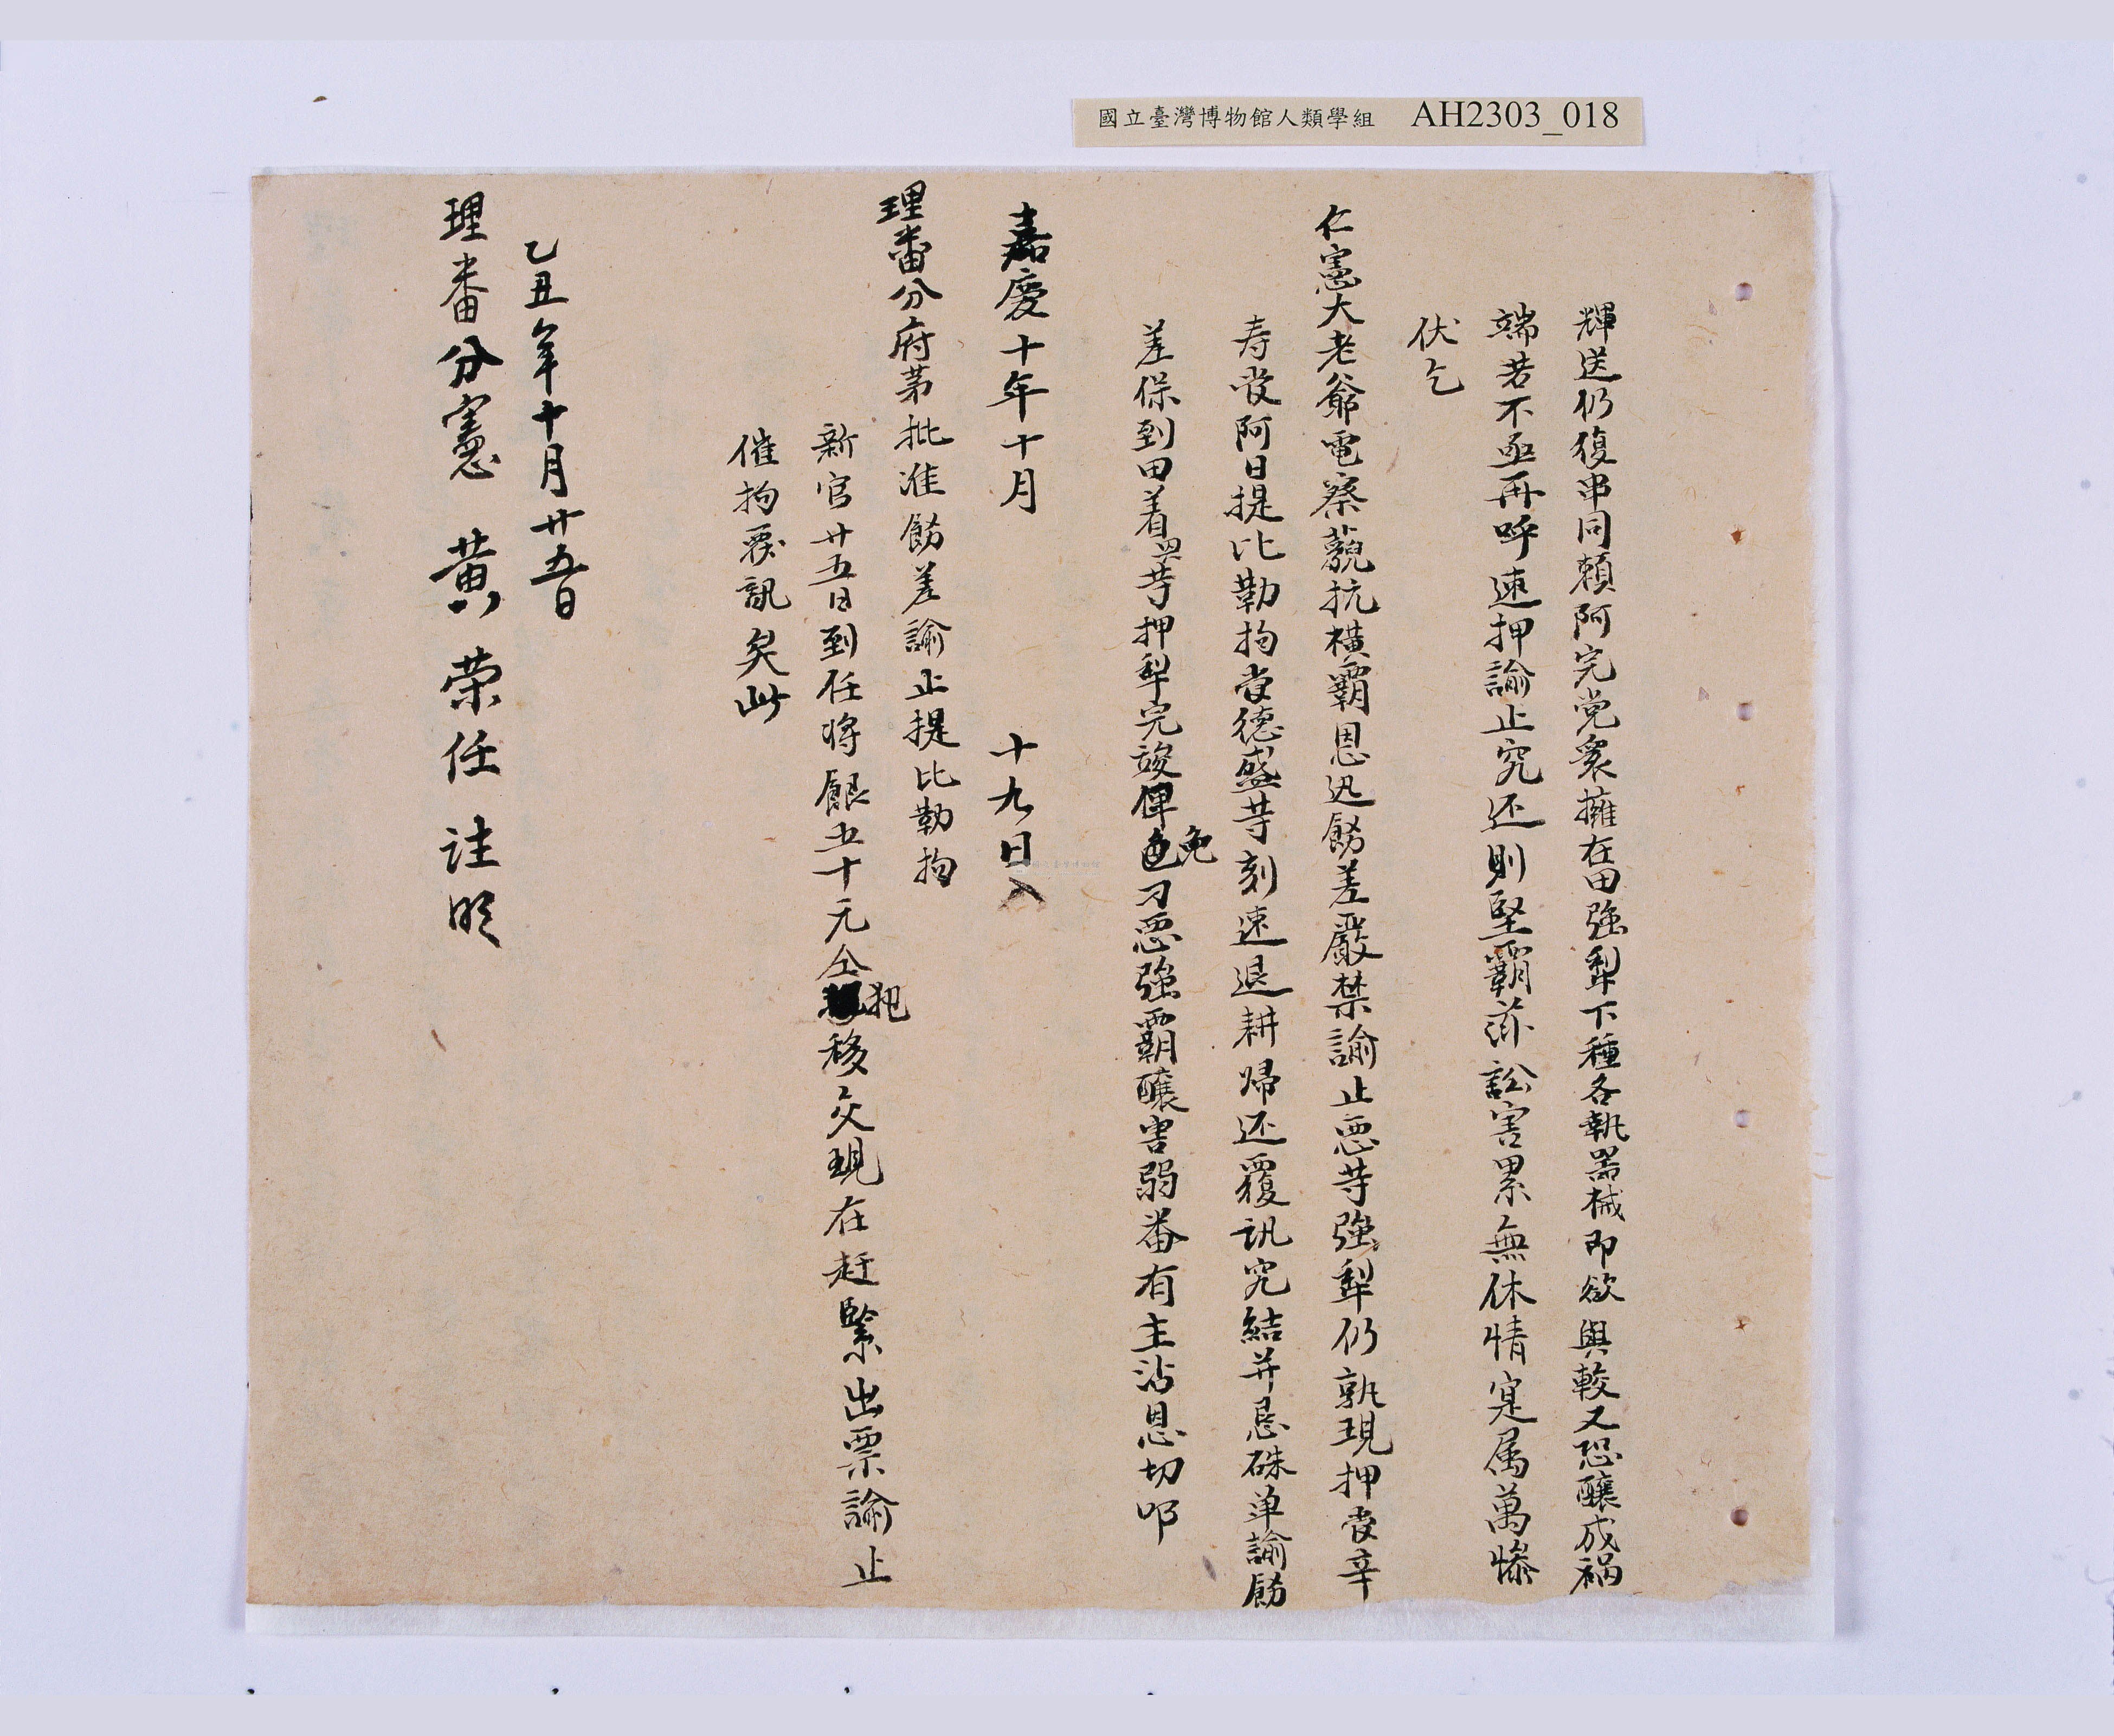 國立臺灣博物館人類學組 AH2303_018
輝送仍復串同賴阿完党衆擁在田強犁下種各執器械即欲與較又恐釀成禍
端若不亟再呼速押諭止究还則堅霸 訟害累無休情寔属萬慘
伏乞
仁憲大老爺電察藐抗橫霸恩迅飭差嚴禁諭止惡等強犁仍孰現押 辛
寿 阿日提比勒拘 德盛等刻速退耕歸还覆訊究結并恳硃单諭飭
差保到田着 等押犁完竣俾免 刁惡強霸釀害弱番有主沾恩切叩
嘉慶十年十月 十九日入
理番分府茅批准飭差諭止提比勒拘
新官廿五日到任將銀五十元仝犯移交現在赶緊出票諭止
催拘 訊矣此
乙丑年十月廿五日
理番分憲 黃 荣任 註明